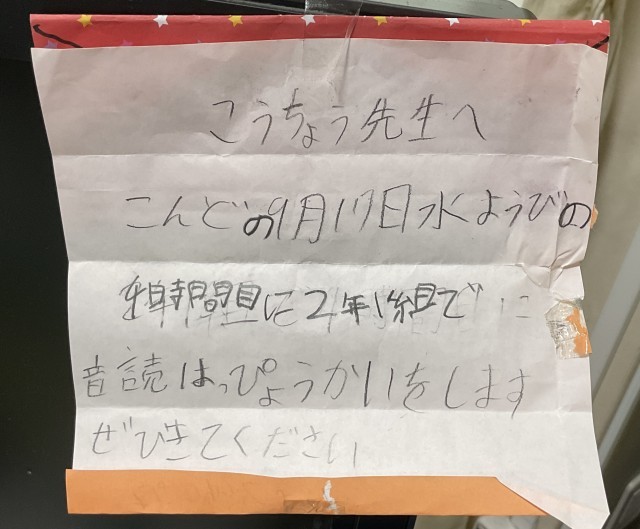 こうちょう先生へ
こんどの9月17日水ようびの
時間目に2年1組で
音読はっぴょうかいをします
ぜひきてください